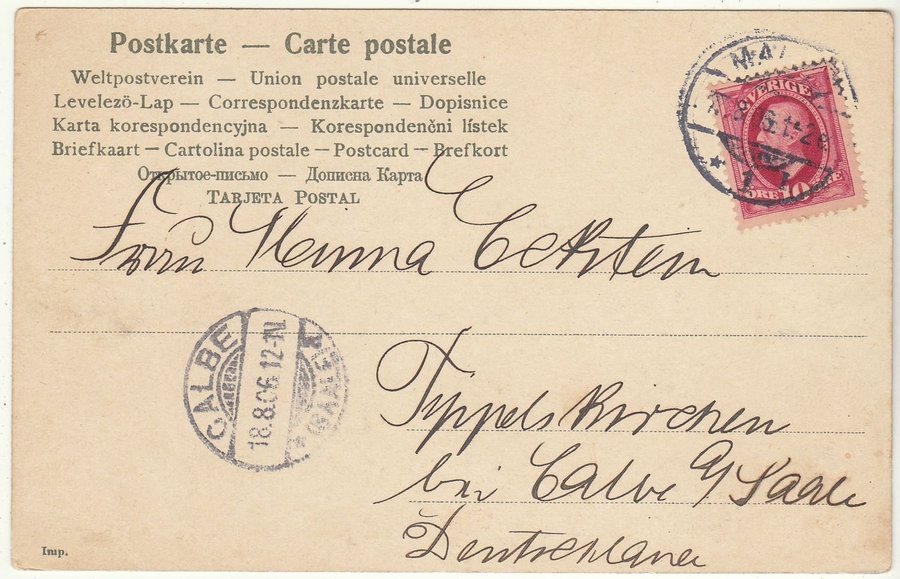 Postkarte — Carte postale
Weltpostverein — Union postale universelle
Levelezö-Lap — Correspondenzkarte — Dopisnice
Karta korespondencyjna — Korespondenčni lístek
Briefkaart — Cartolina postale — Postcard — Brefkort
Открытое-письмо — Дописна Карта
TARJETA POSTAL
SVERIGE
ÖRE 10
Frau Minna Eckstein
CALBE
18.8.06.12-1N
* (SAALE)
Tippelskirchen
bei Calbe a/ Saale
Deutschland
Imp.